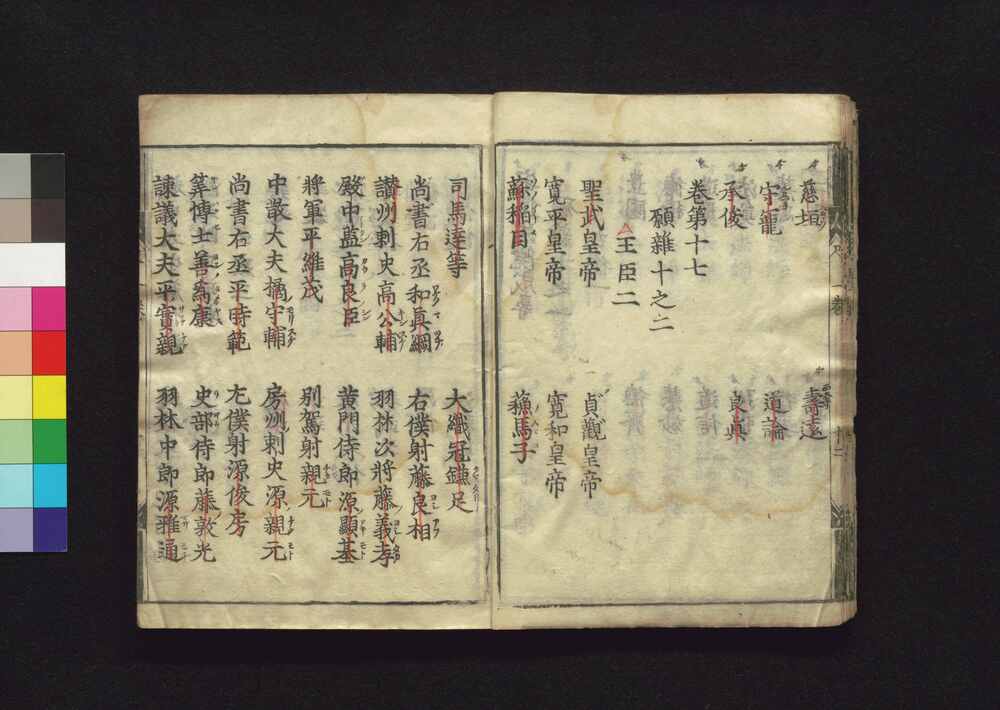 慈垣　壽遠
守籠　道論
承俊　良眞
卷第十七
願雜十之二
王臣二
聖武皇帝　貞觀皇帝
寛平皇帝　寛和皇帝
蘇稻目　蘇馬子
司馬達等　大織冠鎌足
尚書右丞和真綱　右僕射藤良相
讃州刺史高公輔　羽林次將藤義孝
殿中監高良臣　黄門侍郎源顯基
將軍平維茂　別駕射親元
中散大夫橘守輔　房州刺史源親元
尚書右丞平時範　尢僕射源俊房
筭博士善爲康　吏部侍郎藤敦光
諫議大夫平實親　羽林中郎源雅通